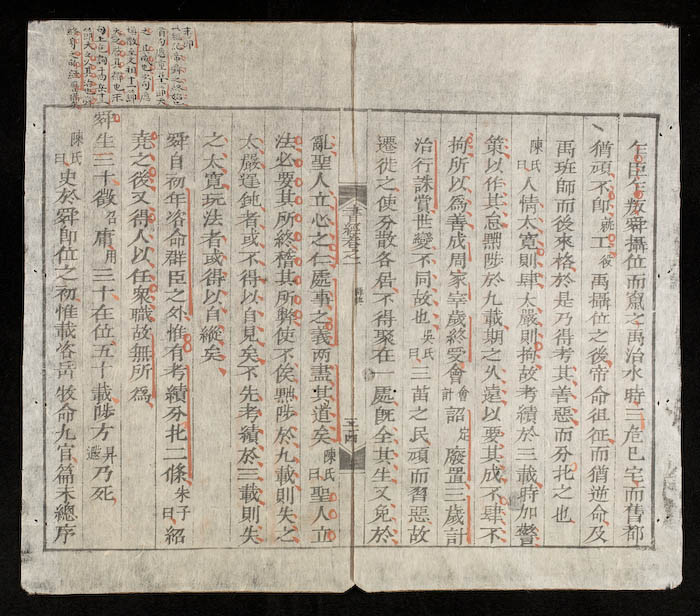 乍臣乍叛舜攝位而竄之禹治水時三危已宅而舊都
猶頑不即就工禹攝位之後帝命徂征而猶逆命及
禹班師而後來格於是乃得考其善惡而分北之也
陳氏曰人情太寬則肆太嚴則拘故考績於三載時加警
策以作其怠黜陟於九載期之久遠以要其成不肆不
拘所以爲善成周家宰歲終受會會計詔定廢置三歲計
治行誅賞世變不同故也吳氏曰三苗之民頑而習惡故
遷徙之使分散各居不得聚在一處旣全其生又免於
書經卷之一
亂聖人立心之仁處事之義兩盡其道矣陳氏曰聖人立
法必要其所終稽其所弊使不俟黜陟於九載則失之
太嚴遲鈍者或不得以自見矣不先考績於三載則失
之太寬玩法者或得以自縱矣
舜自初年咨命群臣之外惟有考績分北二條朱子曰紹
堯之後又得人以任衆職故無所爲
舜生三十徵召庸用三十在位五十載陟方昇遐乃死
陳氏曰史於舜即位之初惟載咨岳牧命九官篇末總序